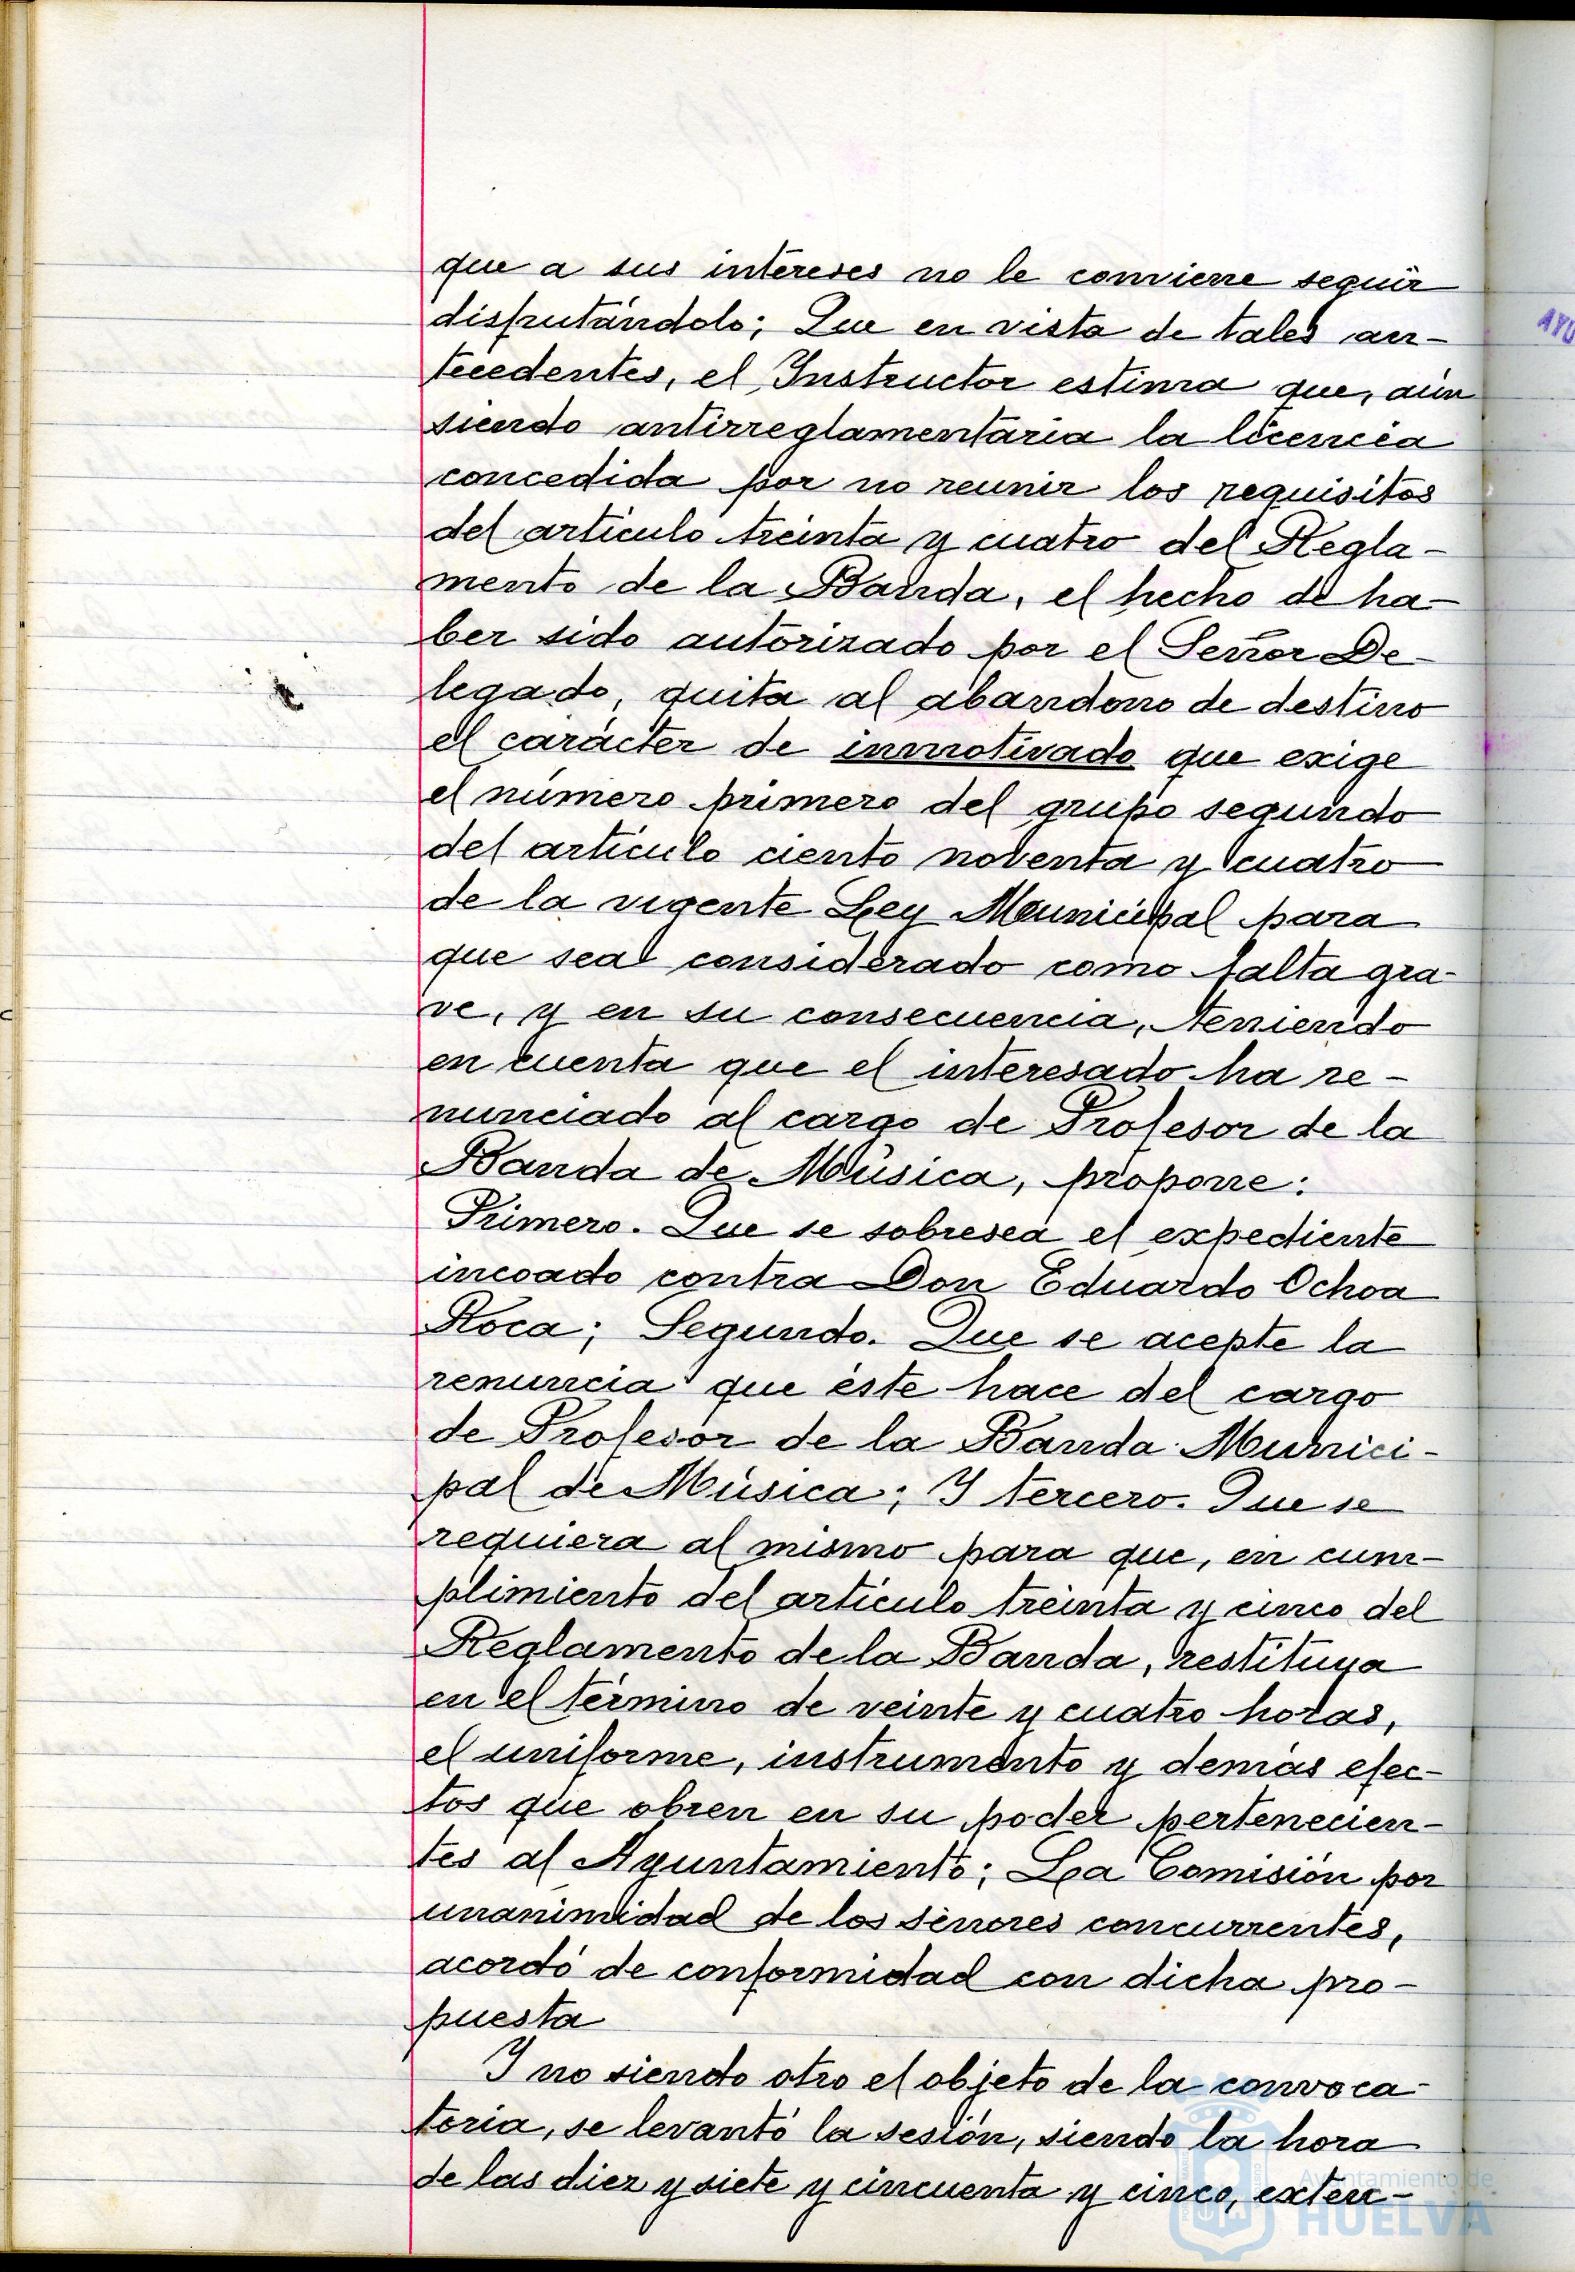 que a sus intereses no le conviene seguir
disfrutándolo; Que en vista de tales an-
tecedentes, el Instructor estima que, aún
siendo antirreglamentaria la licencia
concedida por no reunir los requisitos
del artículo treinta y cuatro del Regla-
mento de la Banda, el hecho de ha-
ber sido autorizado por el Señor De-
legado, quita al abandono de destino
el carácter de inmotivado que exige
el número primero del grupo segundo
del artículo ciento noventa y cuatro
de la vigente Ley Municipal para
que sea considerado como falta gra-
ve, y en su consecuencia, teniendo
en cuenta que el interesado ha re-
nunciado al cargo de Profesor de la
Banda de Música, propone:
Primero. Que se sobresea el expediente
incoado contra Don Eduardo Ochoa
Roca; Segundo. Que se acepte la
renuncia que éste hace del cargo
de Profesor de la Banda Munici-
pal de Música; Y tercero. Que se
requiera al mismo para que, en cum-
plimiento del artículo treinta y cinco del
Reglamento de la Banda, restituya
en el término de veinte y cuatro horas,
el uniforme, instrumento y demás efec-
tos que obren en su poder pertenecien-
tes al Ayuntamiento; La Comisión por
unanimidad de los señores concurrentes,
acordó de conformidad con dicha pro-
puesta
Y no siendo otro el objeto de la convoca-
toria, se levantó la sesión, siendo la hora
de las diez y siete y cincuenta y cinco, exten-
AYU
Ayuntamiento de
HUELVA